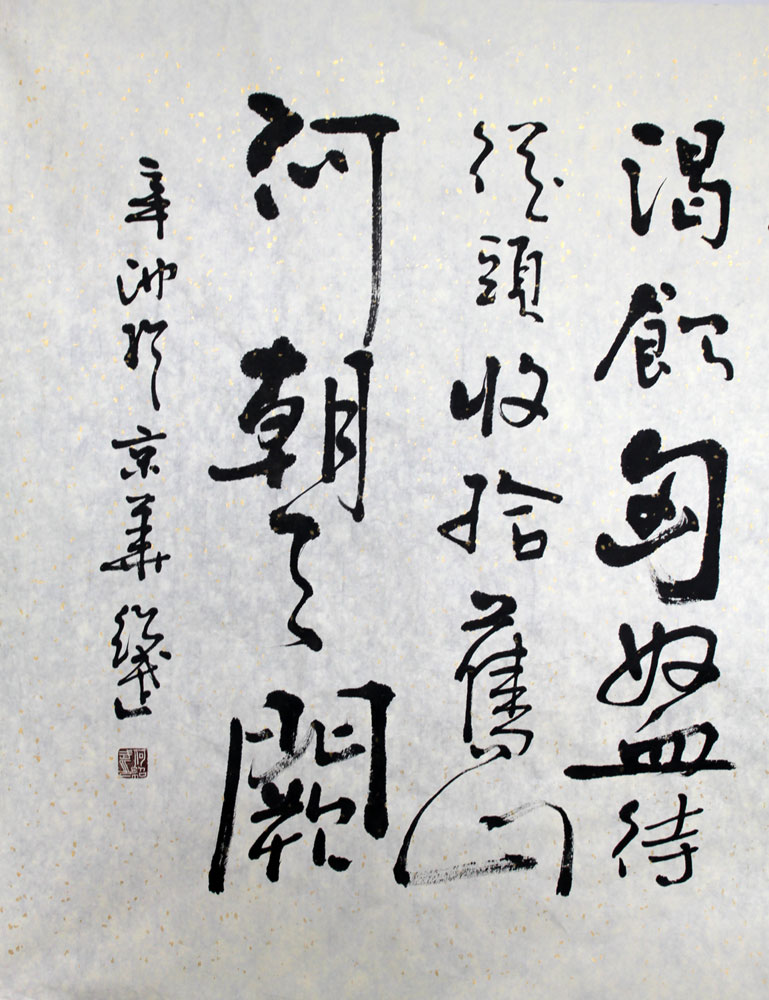 渴飲匈奴血待
從頭收拾舊山
河朝天闕
於京華